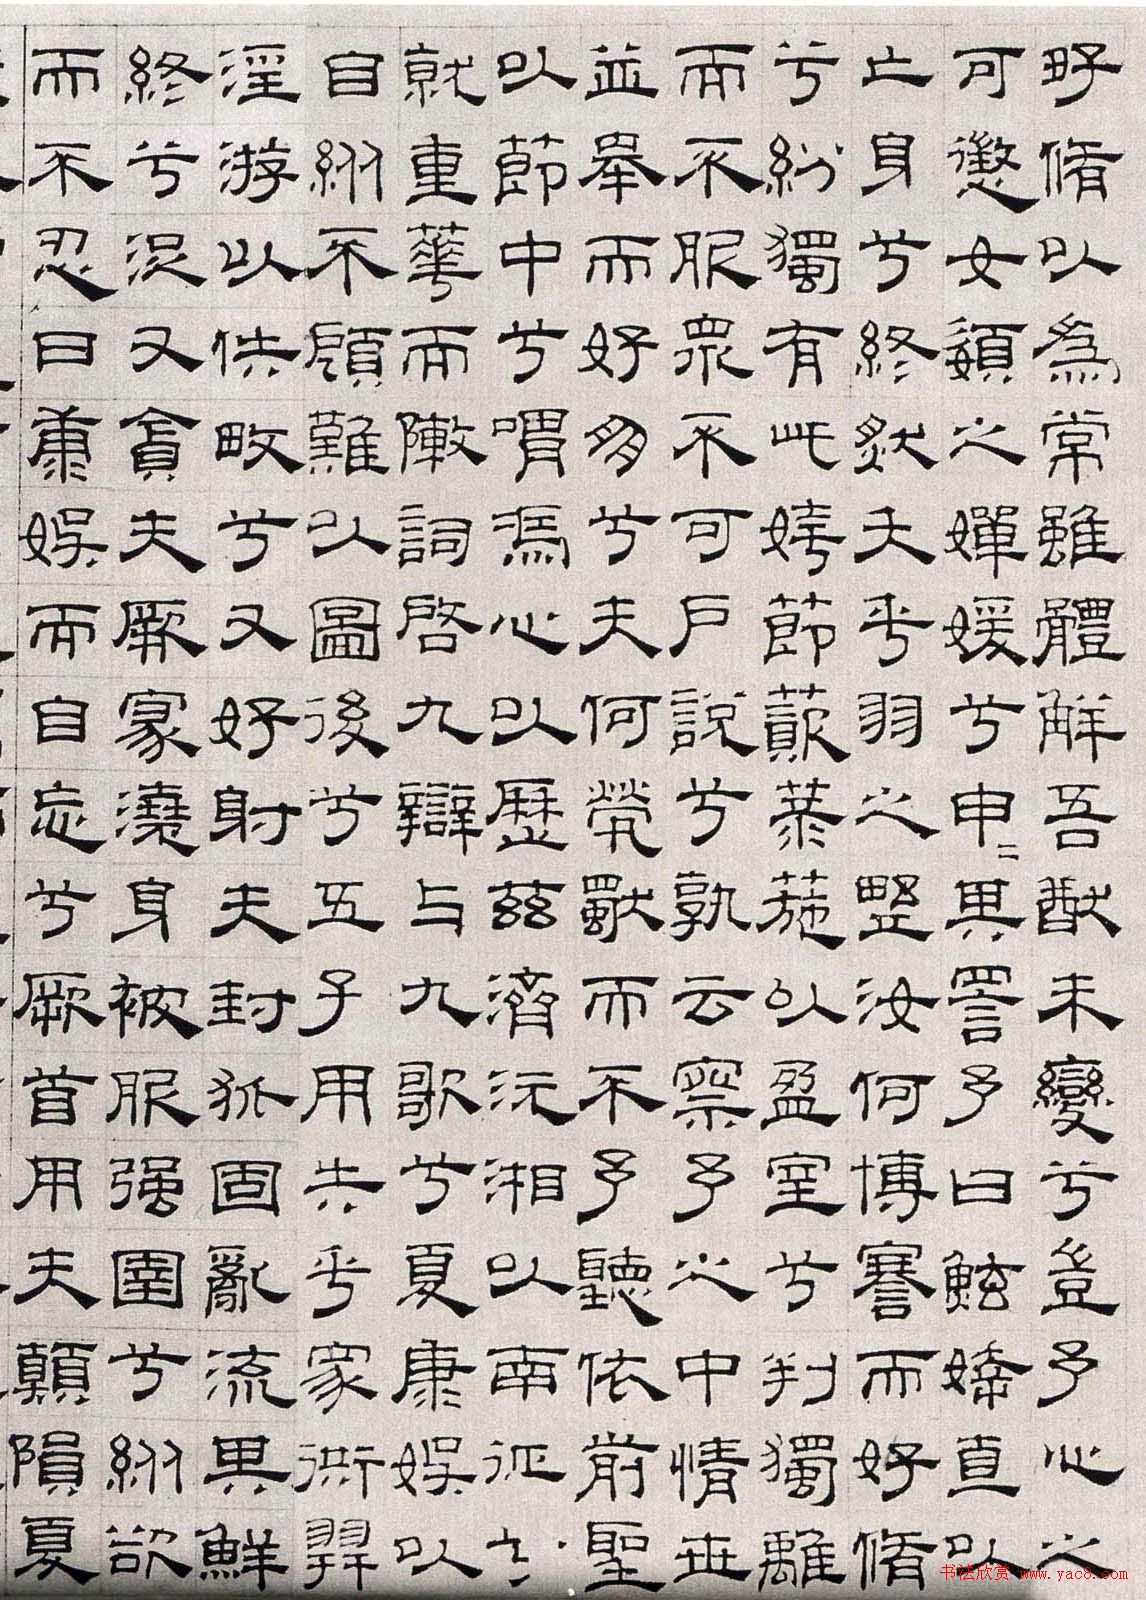 好脩以為常雖體解吾猶未變兮豈予心之
可懲女嬃之嬋媛兮申〻其詈予曰鮌婞直以
亡身兮終然夭乎羽之野汝何博謇而好脩
兮紛獨有此姱節薋菉葹以盈室兮判獨離
而不服眾不可戶說兮孰云察予之中情世
並舉而好朋兮夫何煢獨而不予聽依前聖
以節中兮喟馮心以歷茲濟沅湘以南征
就重華而敶詞啓九辯与九歌兮夏康娛以
自縱不顧難以圖後兮五子用失乎家衖羿
淫游以佚畋兮又好射夫封狐固亂流其鮮
終兮浞又貪夫厥家澆身被服强圉兮縱欲
而不忍日康娛而自忘兮厥首用夫顛隕夏
书法欣赏 www.yac8.com